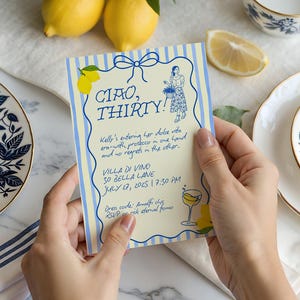 CIAO,
THIRTY!
Kelly's entering her dolce vita
era with prosecco in one hand
and no regrets in the other.
VILLA DI VINO
30 BELLA LANE
JULY 12, 2025 | 7:30 PM
Dress code: Amalfi chic
RSVP or risk eternal FOMO